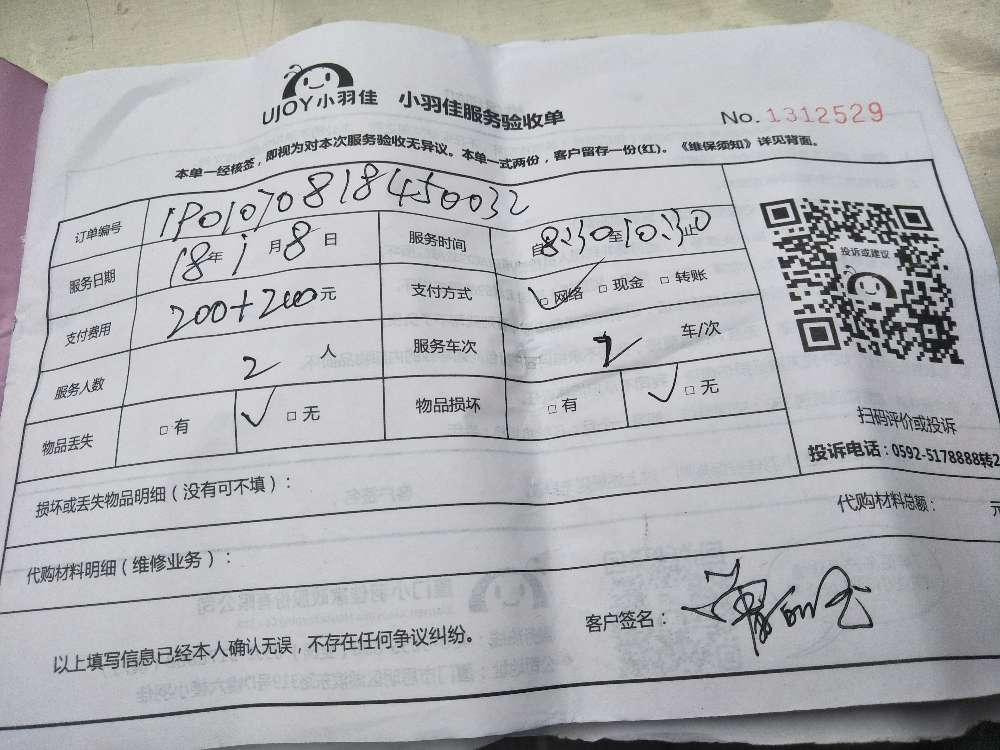 UJOY小羽佳 小羽佳服务验收单 No. 1312529
本单一经核签，即视为对本次服务验收无异议。本单一式两份，客户留存一份(红)。《维保须知》详见背面。
订单编号 1P01070818450032
服务日期 18年1月8日 服务时间 自8:30至10:30止
支付费用 200+200元 支付方式 ☑网络 □现金 □转账
服务人数 2人 服务车次 2 车/次
物品丢失 □有 ☑无 物品损坏 □有 ☑无
投诉或建议
扫码评价或投诉
投诉电话：0592-5178888转2
损坏或丢失物品明细（没有可不填）：
代购材料明细（维修业务）： 代购材料总额： 元
以上填写信息已经本人确认无误，不存在任何争议纠纷。 客户签名：